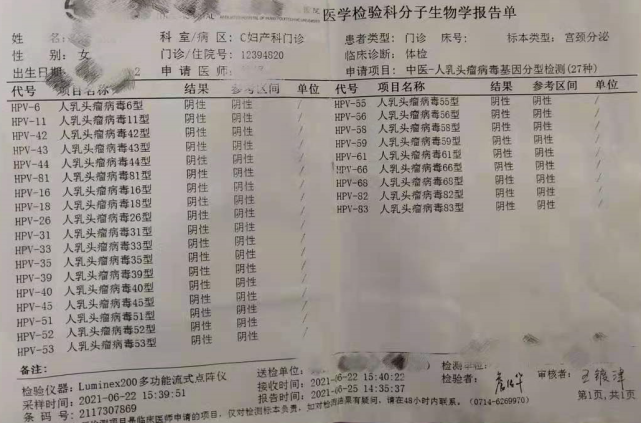 医学检验科分子生物学报告单
姓
科室/病区: C妇产科门诊
患者类型: 门诊 床号:
标本类型: 宫颈分泌
性 别: 女
门诊/住院号: 12394820
临床诊断: 体检
出生日期 2
申请医师:
申请项目: 中医-人乳头瘤病毒基因分型检测(27种)
代号 项目名称 结果 参考区间 单位
HPV-6 人乳头瘤病毒6型 阴性 阴性 /
HPV-11 人乳头瘤病毒11型 阴性 阴性 /
HPV-42 人乳头瘤病毒42型 阴性 阴性 /
HPV-43 人乳头瘤病毒43型 阴性 阴性 /
HPV-44 人乳头瘤病毒44型 阴性 阴性 /
HPV-81 人乳头瘤病毒81型 阴性 阴性 /
HPV-16 人乳头瘤病毒16型 阴性 阴性 /
HPV-18 人乳头瘤病毒18型 阴性 阴性 /
HPV-26 人乳头瘤病毒26型 阴性 阴性 /
HPV-31 人乳头瘤病毒31型 阴性 阴性 /
HPV-33 人乳头瘤病毒33型 阴性 阴性 /
HPV-35 人乳头瘤病毒35型 阴性 阴性 /
HPV-39 人乳头瘤病毒39型 阴性 阴性 /
HPV-40 人乳头瘤病毒40型 阴性 阴性 /
HPV-45 人乳头瘤病毒45型 阴性 阴性 /
HPV-51 人乳头瘤病毒51型 阴性 阴性 /
HPV-52 人乳头瘤病毒52型 阴性 阴性 /
HPV-53 人乳头瘤病毒53型 阴性 阴性 /
代号 项目名称 结果 参考区间 单位
HPV-55 人乳头瘤病毒55型 阴性 阴性 /
HPV-56 人乳头瘤病毒56型 阴性 阴性 /
HPV-58 人乳头瘤病毒58型 阴性 阴性 /
HPV-59 人乳头瘤病毒59型 阴性 阴性 /
HPV-61 人乳头瘤病毒61型 阴性 阴性 /
HPV-66 人乳头瘤病毒66型 阴性 阴性 /
HPV-68 人乳头瘤病毒68型 阴性 阴性 /
HPV-82 人乳头瘤病毒82型 阴性 阴性 /
HPV-83 人乳头瘤病毒83型 阴性 阴性 /
备注:
检验仪器: Luminex200多功能流式点阵仪
送检单位:
检测单位:
采样时间: 2021-06-22 15:39:51
接收时间: 2021-06-22 15:40:22
检验者:
审核者:
条 码 号: 2117307869
报告时间: 2021-06-25 14:35:37
第1页,共1页
检测项目是临床医师申请的项目,仅对检测标本负责,如对检测结果有疑问,请在48小时内联系。(0714-6269970)